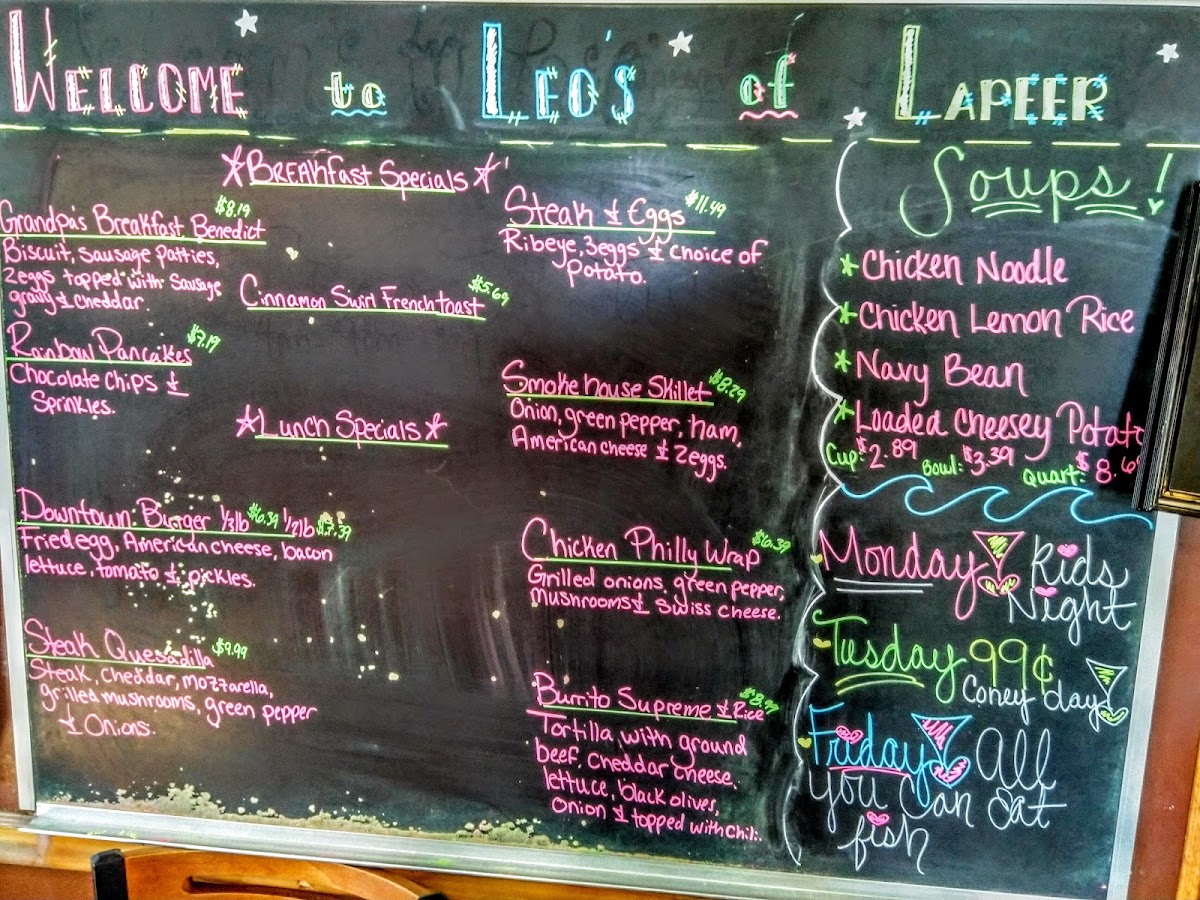 Welcome to Leo's of Lapeer
*Breakfast Specials*
Grandpa's Breakfast Benedict $8.19
Biscuit, Sausage Patties,
2eggs topped with Sausage
gravy & cheddar.
Cinnamon Swirl Frenchtoast $5.69
Rainbow Pancakes $7.19
Chocolate Chips &
Sprinkles.
Steak & Eggs $11.49
Ribeye, 3eggs & choice of
Potato.
Smokehouse Skillet $8.29
Onion, green pepper, ham,
American cheese & 2eggs.
*Lunch Specials*
Downtown Burger 1/3lb $6.39 1/2lb $7.39
Fried egg, American cheese, bacon
lettuce, tomato & pickles.
Steak Quesadilla $9.99
Steak, cheddar, mozzarella,
grilled mushrooms, green pepper
& Onions.
Chicken Philly Wrap $6.39
Grilled onions, green pepper,
mushrooms & Swiss cheese.
Burrito Supreme & Rice
Tortilla with ground
beef, cheddar cheese,
lettuce, black olives,
Onion & topped with Chili.
Soups!
* Chicken Noodle
* Chicken Lemon Rice
* Navy Bean
* Loaded Cheesey Potato
Cup: $2.89 Bowl: $3.39 Quart: $8.69
Monday Kids
Night
Tusday 99¢
Coney day
Friday All
you Can Eat
fish